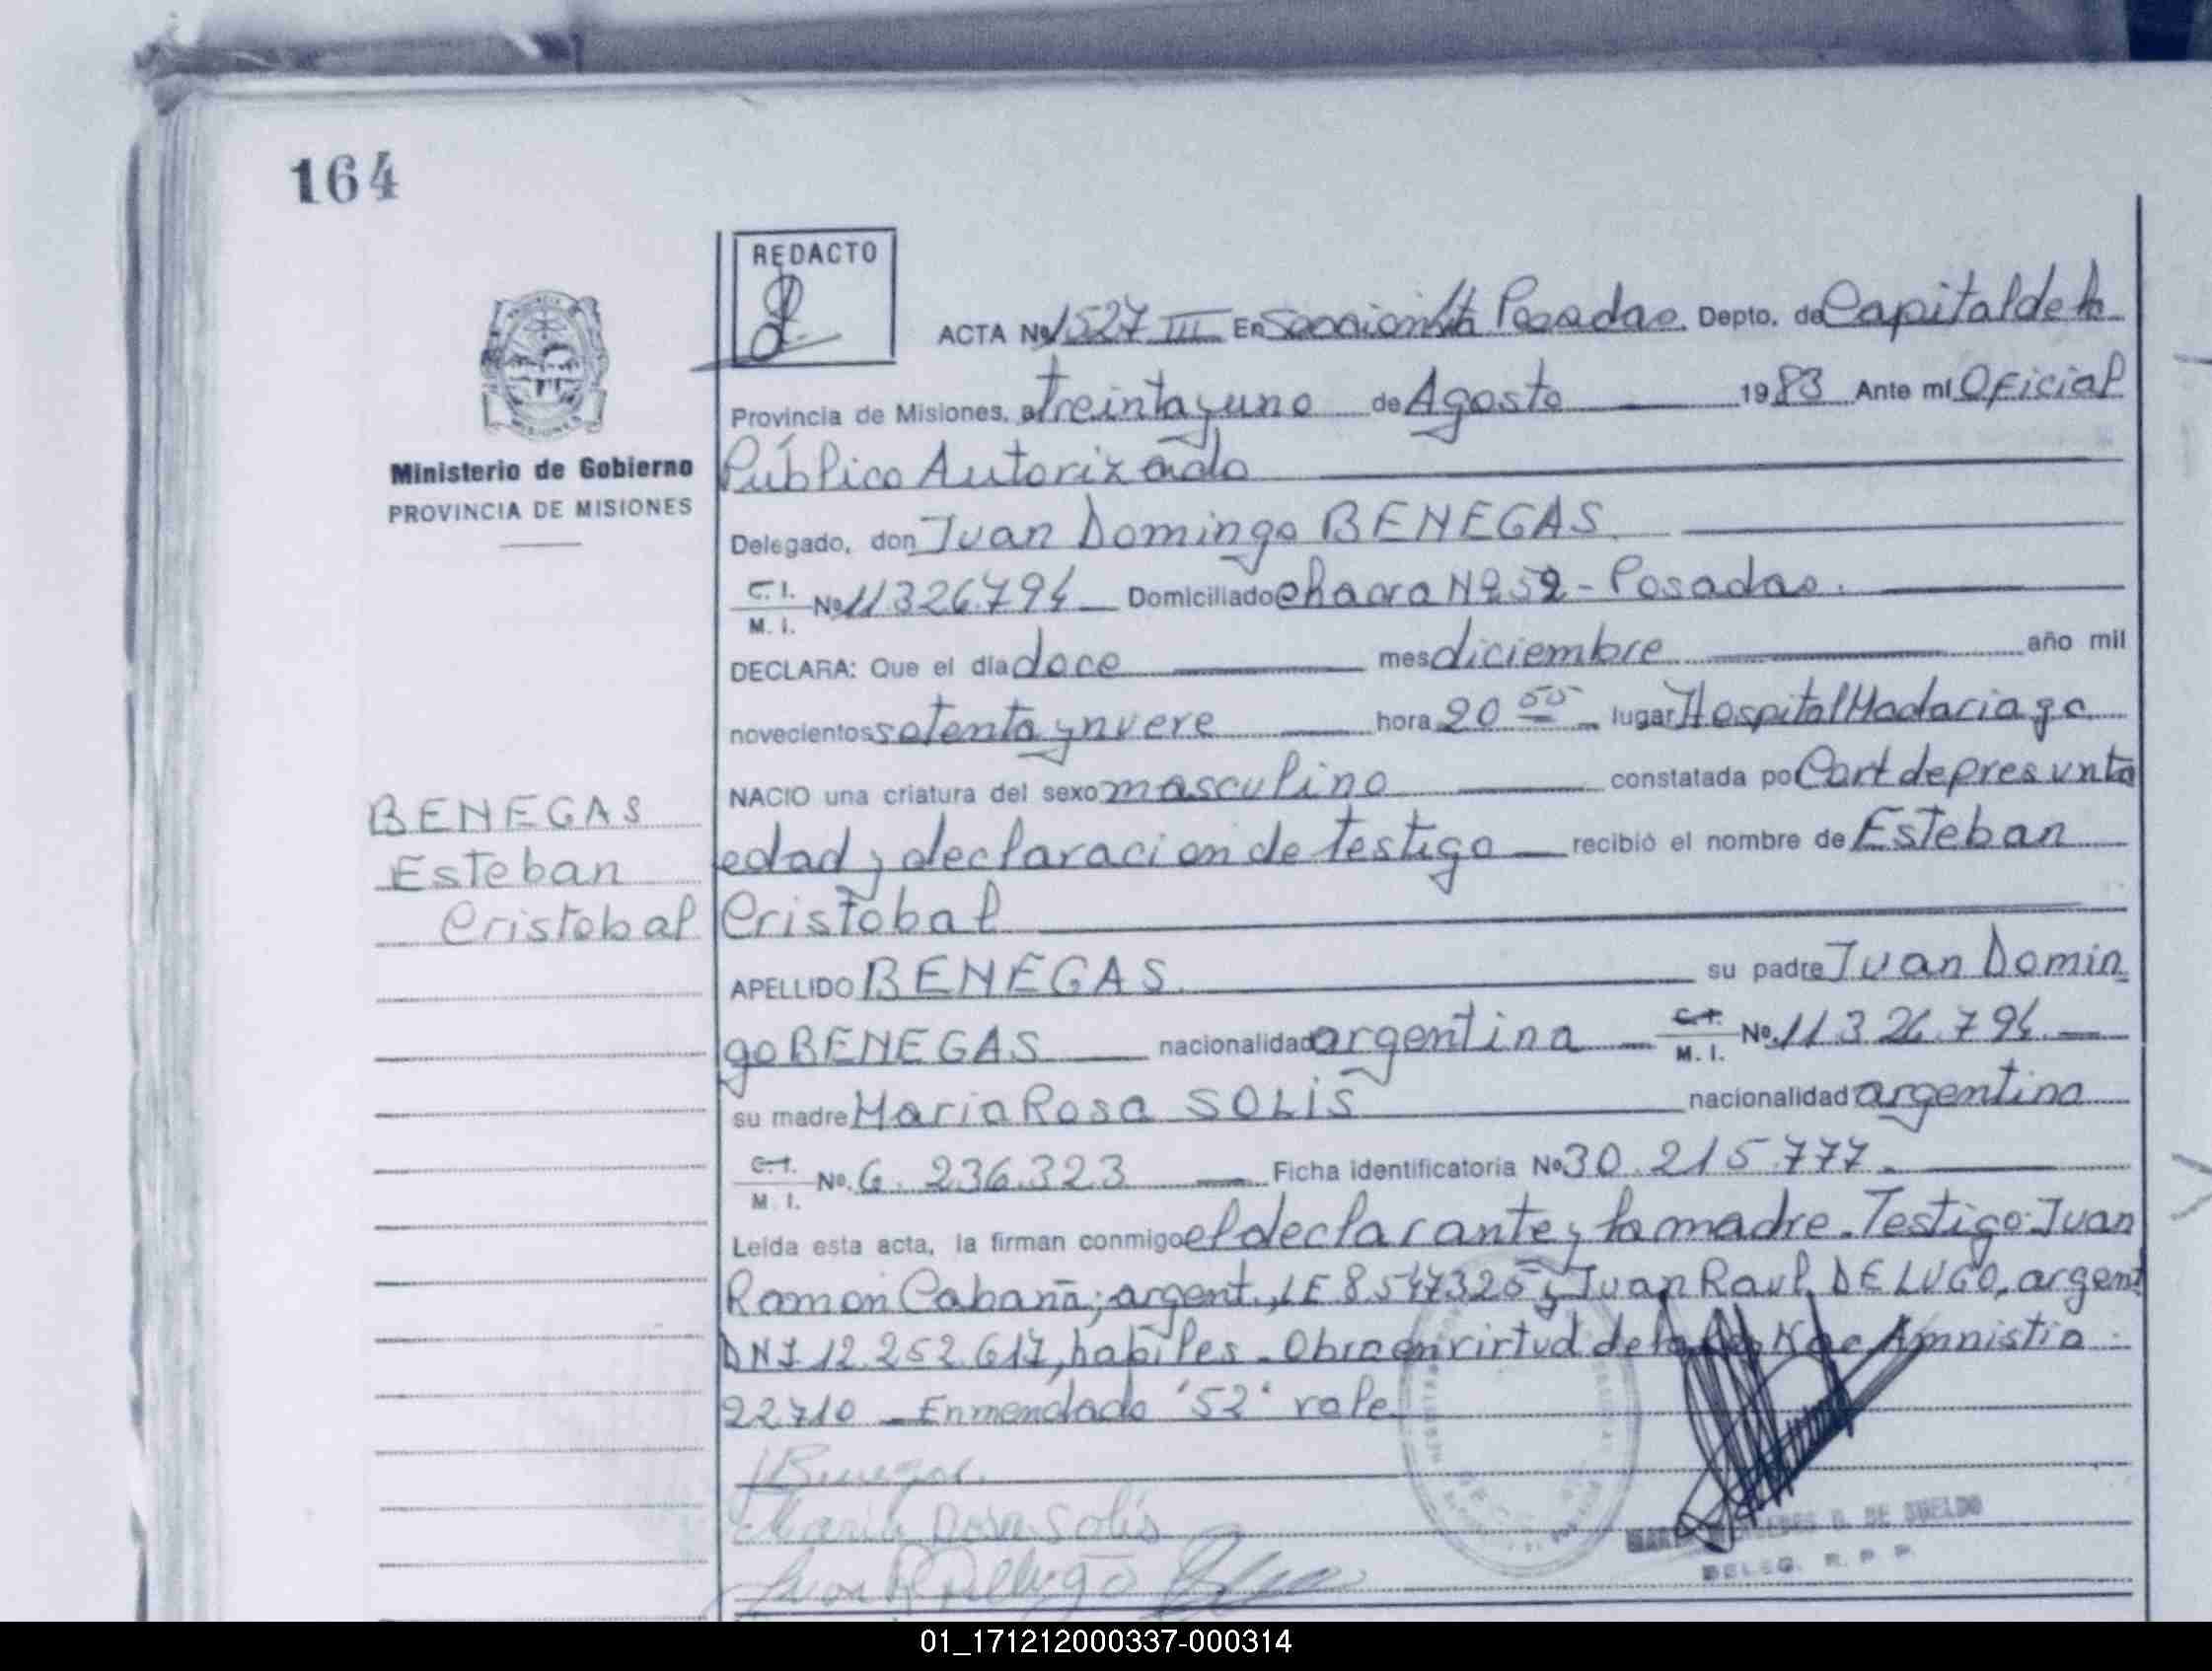 164
REDACTO
ACTA Nº 1527 III En Sección 1ra Posadas. Depto. de Capital de la
Provincia de Misiones, a treinta y uno de Agosto 1983 Ante mí Oficial
Ministerio de Gobierno
PROVINCIA DE MISIONES
Público Autorizado
Delegado, don Juan Domingo BENEGAS.
C. I. M. I. Nº 11326.794 Domiciliado chacra Nº 52 - Posadas.
DECLARA: Que el día doce mes diciembre año mil
novecientos setenta y nueve hora 20 lugar Hospital Madariaga
NACIO una criatura del sexo masculino constatada po Cert de presunta
BENEGAS
Esteban
Cristobal
edad y declaracion de testigo recibió el nombre de Esteban
Cristobal
APELLIDO BENEGAS. su padre Juan Domin
go BENEGAS nacionalidad argentina C. I. M. I. Nº 11326.794
su madre Maria Rosa SOLIS nacionalidad argentina
C. I. M. I. Nº 6.236.323 Ficha identificatoria Nº 30.215.777.
Leída esta acta, la firman conmigo el declarante y la madre. Testigo: Juan
Ramon Cabaña; argent., LE 8547325 y Juan Raul DE LUGO, argent
DNI 12.252.617, habiles. Obra en virtud de la Amnistia
22710 - Enmendado "52" vale
Benegas.
Maria Rosa Solis
DE SUELDO
DELEG. R. P. P.
01_171212000337-000314